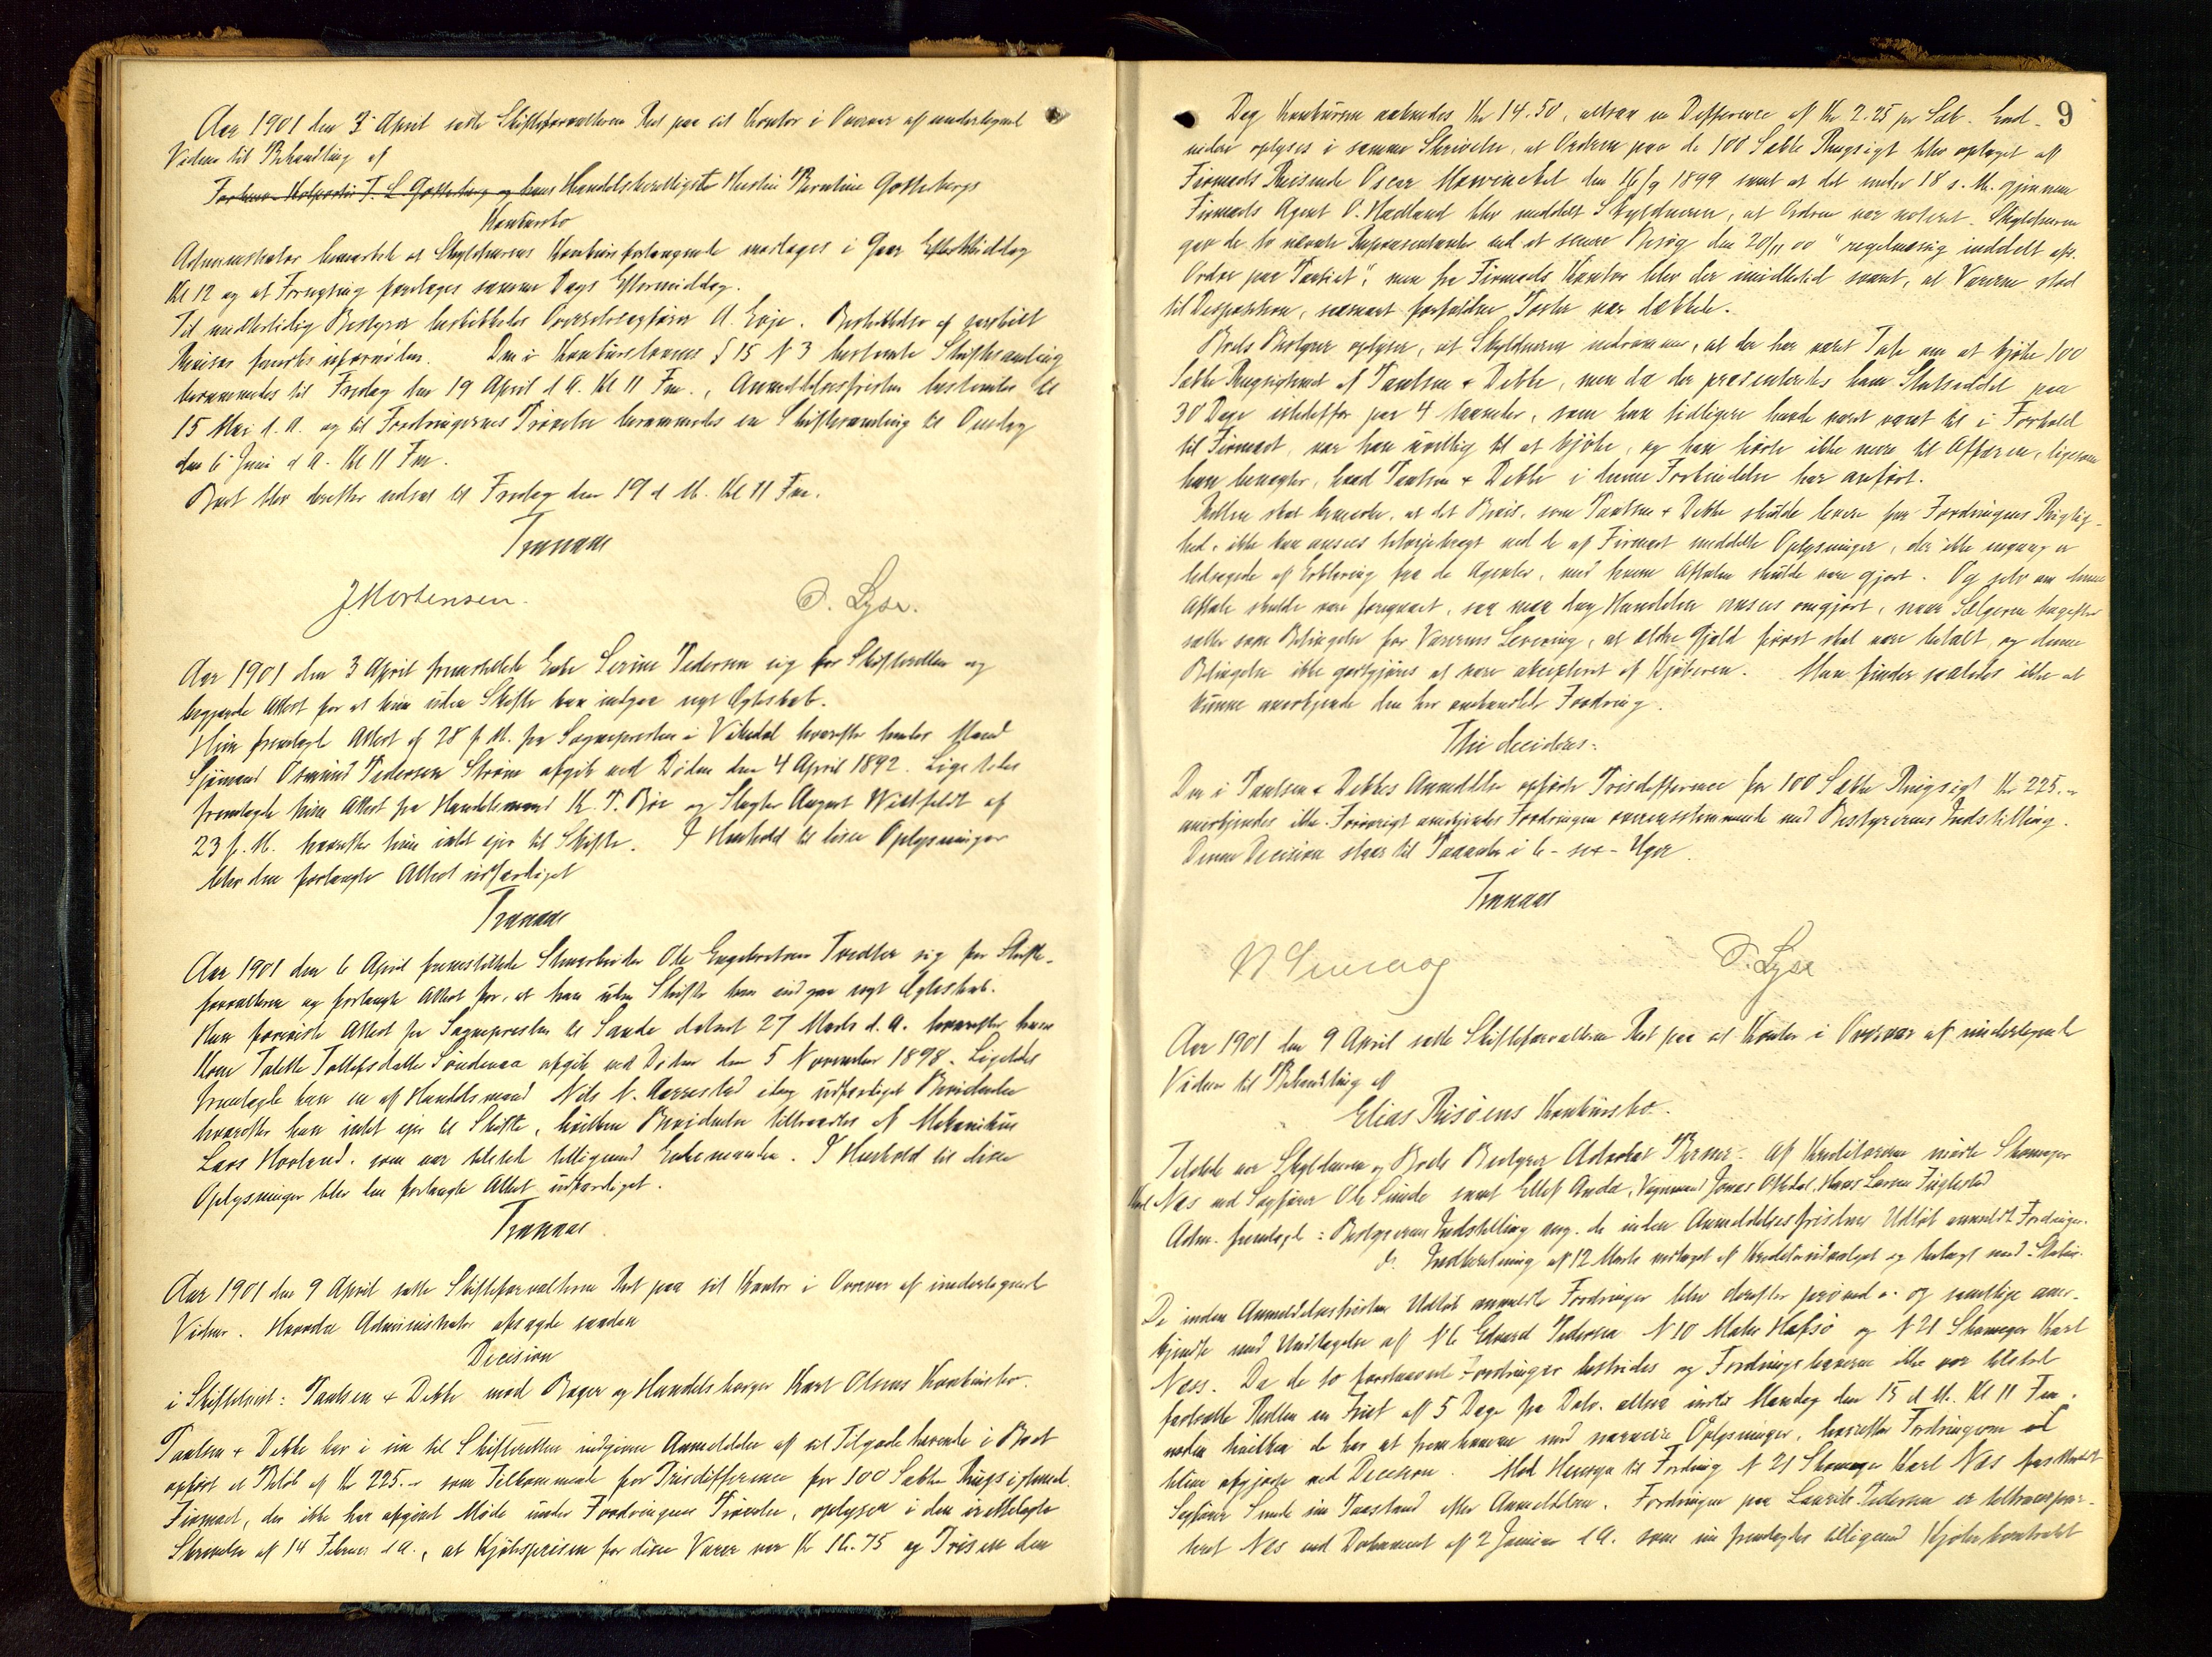 Aar 1901 den 3 April satte Skifteforvalteren Ret paa sit Kontor i Oversor af undertegnet
Vidner til Behandling af
Handelsberettigede Hustru Berntine Gotteborgs
Konkursbo
Administrator bemærket at Skyldnerens Konkursforlangende modtages i Gaar Eftermiddag
Kl 12 og at Forsegling foretages samme Dags Eftermiddag.
Til midlertidig Bestyrer beskikkedes Overretssagfører A. Eoje. Beskikkelse af særskilt
Revisor fandtes ufornøden. Den i Konkurslovens § 15 N 3 bestemte Skiftesamling
berammedes til Fredag den 19 April d. A. Kl 11 Fm., Anmeldelsesfristen bestemtes til
15 Mai d. A. og til Fordringernes Prøvelse berammedes en Skiftesamling til Onsdag
den 6 Juni d A. Kl 11 Fm.
Boet blev derefter udsat til Fredag den 19 d. M. Kl 11 Fm.
Tranaas
J Mortensen. O. Lyse.
Aar 1901 den 3 April fremstillede Enke Serine Pedersen sig for Skifteretten og
begjærede Attest for at hun uden Skifte kan indgaa nyt Ægteskab.
Hun fremlagde Attest af 28 f. M. fra Sognepresten i Vikedal hvorefter hendes Mand
Sjømand Osmund Pedersen Strøm afgik ved Døden den 4 April 1892. Ligeledes
fremlagde hun Attest fra Handelsmand K. T. Bøe og Slagter August Widtfeldt af
23 f. M. hvorefter hun intet eier til Skifte. I Henhold til disse Oplysninger
blev den forlangte Attest udfærdiget
Tranaas
Aar 1901 den 6 April fremstillede Stenarbeider Ole Engebretsen Tvedter sig for Skifte-
forvalteren og forlangte Attest for, at han uden Skifte kan indgaa nyt Ægteskab.
Han foreviste Attest fra Sognepresten til Sande dateret 27 Marts d. A. hvorefter hans
Kone Tolette Tollefsdatter Søndenaa afgik ved Døden den 5 November 1898. Ligeledes
fremlagde han en af Handelsmand Nils N. Aarrestad idag udfærdiget Bevidnelse
hvorefter han intet eier til Skifte, hvilken Bevidnelse tiltraadtes af Mekanikus
Lars Hovland, som var tilstede tilligemed Enkemanden. I Henhold til disse
Oplysninger blev den forlangte Attest udfærdiget.
Tranaas
Aar 1901 den 9 April satte Skifteforvalteren Ret paa sit Kontor i Oversor af undertegnet
Vidner. Hvorda Administrator afsagde saadan
Decision
i Skifteret: Paulsen & Dekke mod Bager og Handelsborger Karl Olsens Konkursbo.
Paulsen & Dekke har i sin til Skifteretten indgivne Anmeldelse af sit Tilgodehavende i Boet
opført et Beløb af Kr 225.- som Tilkommende for Prisdifferance for 100 Sække Rugsigtemel.
Firmaet, der ikke har afgivet Møde under Fordringens Prøvelse, oplyser i den irettelagte
Skrivelse af 14 Februar d. A., at Kjøbsprisen for disse Varer var Kr 16.75 og Prisen den
9
Dag Konkursen aabnedes Kr 14.50, altsaa en Differance af Kr 2.25 pr Sæk. End-
videre oplyses i samme Skrivelse, at Ordren paa de 100 Sække Rugsigt blev optaget af
Firmaets Reisende Oscar Mowinckel den 16/9 1899 samt at det under 18 s. M. gjennem
Firmaets Agent O. Hadland blev meddelt Skyldneren, at Ordren var noteret. Skyldneren
gav de to nævnte Repræsentanter ved et senere Besøg den 20/11 00 "regelmæssig inddelt
Ordre paa Partiet", men fra Firmaets Kontor blev der imidlertid svaret, at Varerne stod
til Disposition, saasnart forfaldne Poster var dækket.
Boets Bestyrer oplyser, at Skyldneren indrømmer, at der har været Tale om at kjøbe 100
Sække Rugsigtemel af Paulsen & Dekke, men da der præsenteredes ham Slutseddel paa
30 Dage istedetfor paa 4 Maaneder, som han tidligere havde været vant til i Forhold
til Firmaet, var han uvillig til at kjøbe, og han hørte ikke mere til Affæren, ligesom
han benægter, hvad Paulsen & Dekke i denne Forbindelse har anført.
Retten skal bemærke, at det Bevis, som Paulsen & Dekke skulde levere for Fordringens Rigtig-
hed, ikke kan ansees tilveiebragt ved de af Firmaet meddelte Oplysninger, der ikke engang er
ledsagede af Erklæring fra de Agenter, med hvem Aftalen skulde være gjort. Og selv om denne
Aftale skulde være foregaaet, saa maa dog Handelen ansees omgjort, naar Sælgeren bagefter
sætter som Betingelse for Varernes Levering, at ældre Gjæld først skal være betalt, og denne
Betingelse ikke godtgjøres at være akcepteret af Kjøberen. Man finder saaledes ikke at
kunne anerkjende den her omhandlede Fordring.
Thi decideres:
Den i Paulsen & Dekkes Anmeldelse opførte Prisdifferance for 100 Sække Rugsigt Kr 225.-
anerkjendes ikke. Forøvrigt anerkjendes Fordringen overensstemmende med Bestyrerens Indstilling.
Denne Decision staar til Paaanke i 6 - sex - Uger.
Tranaas
O. Lyse
Aar 1901 den 9 April satte Skifteforvalteren Ret paa sit Kontor i Oversor af undertegnet
Vidner til Behandling af
Elias Risøens Konkursbo.
Tilstede var Skyldneren og Boets Bestyrer Advokat Berner. Af Kreditorerne mødte Skomager
Karl Næs ved Sagfører Ole Sunde samt Ellef Anda, Vognmand Jonas Oftedal, Hans Larsen Fuglestad
Adm. fremlagde: Bestyrerens Indstilling ang. de inden Anmeldelsesfristens Udløb anmeldte Fordringer.
do. Indberetning af 12 Marts vedtaget af Kreditorudvalget og belagt med Status.
De inden Anmeldelsesfristens Udløb anmeldte Fordringer blev derefter prøvede og samtlige aner-
kjendte med Undtagelse af N 6 Edvard Pedersen N 10 Mathis Hafsø og N 21 Skomager Karl
Næs. Da de to førstnævnte Fordringer bestrides og Fordringshaverne ikke var tilstede
fastsatte Retten en Frist af 5 Dage fra Dato, altsaa indtil Mandag den 15 d. M. Kl 11 Fm.
inden hvilken de har at fremkomme med nærmere Oplysninger, hvorefter Fordringerne vil
blive afgjorte ved Decision. Med Hensyn til Fordring N 21 Skomager Karl Næs fastholdt
Sagfører Sunde sin Paastand efter Anmeldelsen. Fordringen paa Laurits Pedersen er tiltranspor-
teret Næs ved Dokument af 2 Januar d. A. som nu fremlagdes tilligemed Kjøbekontrakt